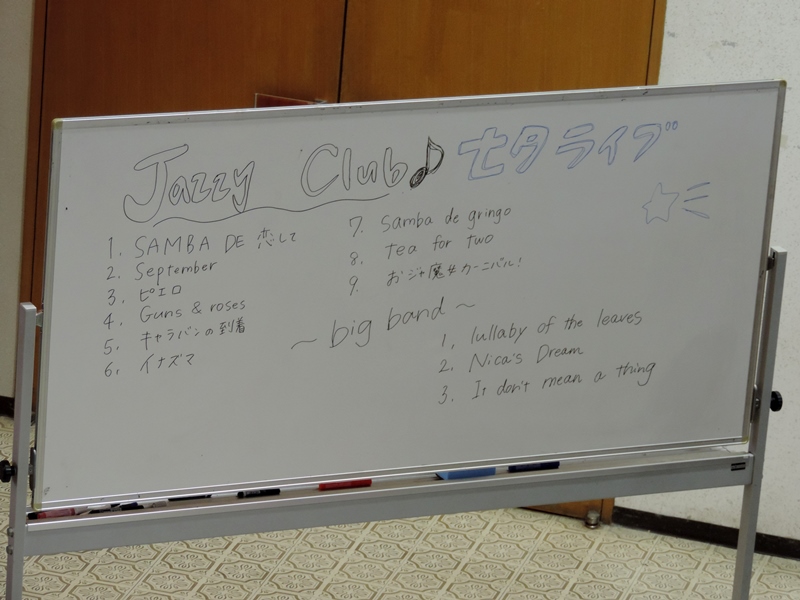 Jazzy Club♪ 七夕ライブ
1. SAMBA DE 恋して
2. September
3. ピエロ
4. Guns & roses
5. キャラバンの到着
6. イナズマ
7. Samba de gringo
8. tea for two
9. おジャ魔女カーニバル!
～big band～
1. lullaby of the leaves
2. Nica's Dream
3. It don't mean a thing